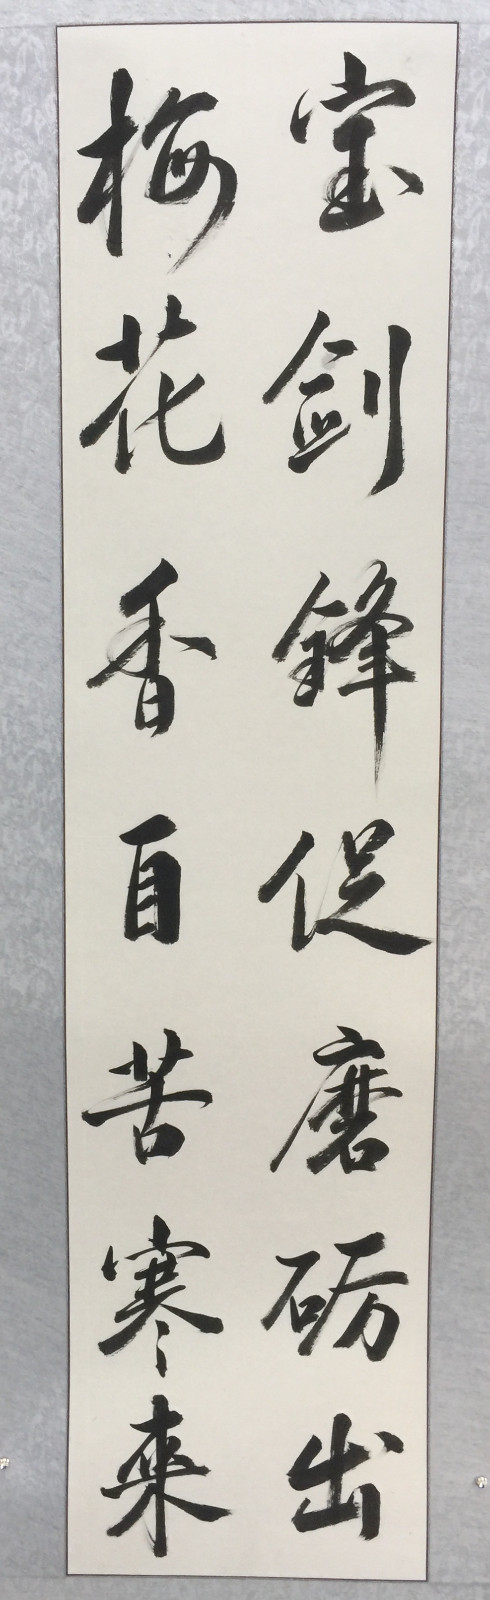 宝剑锋促磨砺出
梅花香自苦寒來